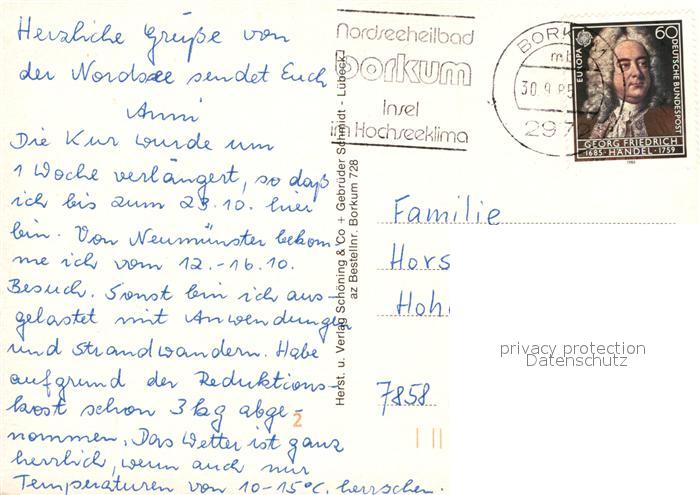 Herzliche Grüße von
der Nordsee sendet Euch
Anni
Die Kur wurde um
1 Woche verlängert, so daß
ich bis zum 23.10. hier
bin. Von Neumünster bekom-
me ich vom 12.-16.10.
Besuch. Sonst bin ich aus-
gelastet mit Anwendungen
und Strandwandern. Habe
aufgrund der Reduktions-
kost schon 3 kg abge-
nommen. Das Wetter ist ganz
herrlich, wenn auch nur
Temperaturen von 10-15°C. herrschen.
Herst. u. Verlag Schöning & Co + Gebrüder Schmidt - Lübeck
az Bestellnr. Borkum 728
Nordseeheilbad
borkum
Insel
im Hochseeklima
30.9.85
2972
EUROPA
60
DEUTSCHE BUNDESPOST
GEORG FRIEDRICH
1685 · HÄNDEL · 1759
1985
Familie
Hors
Hoh
privacy protection
Datenschutz
7858
2